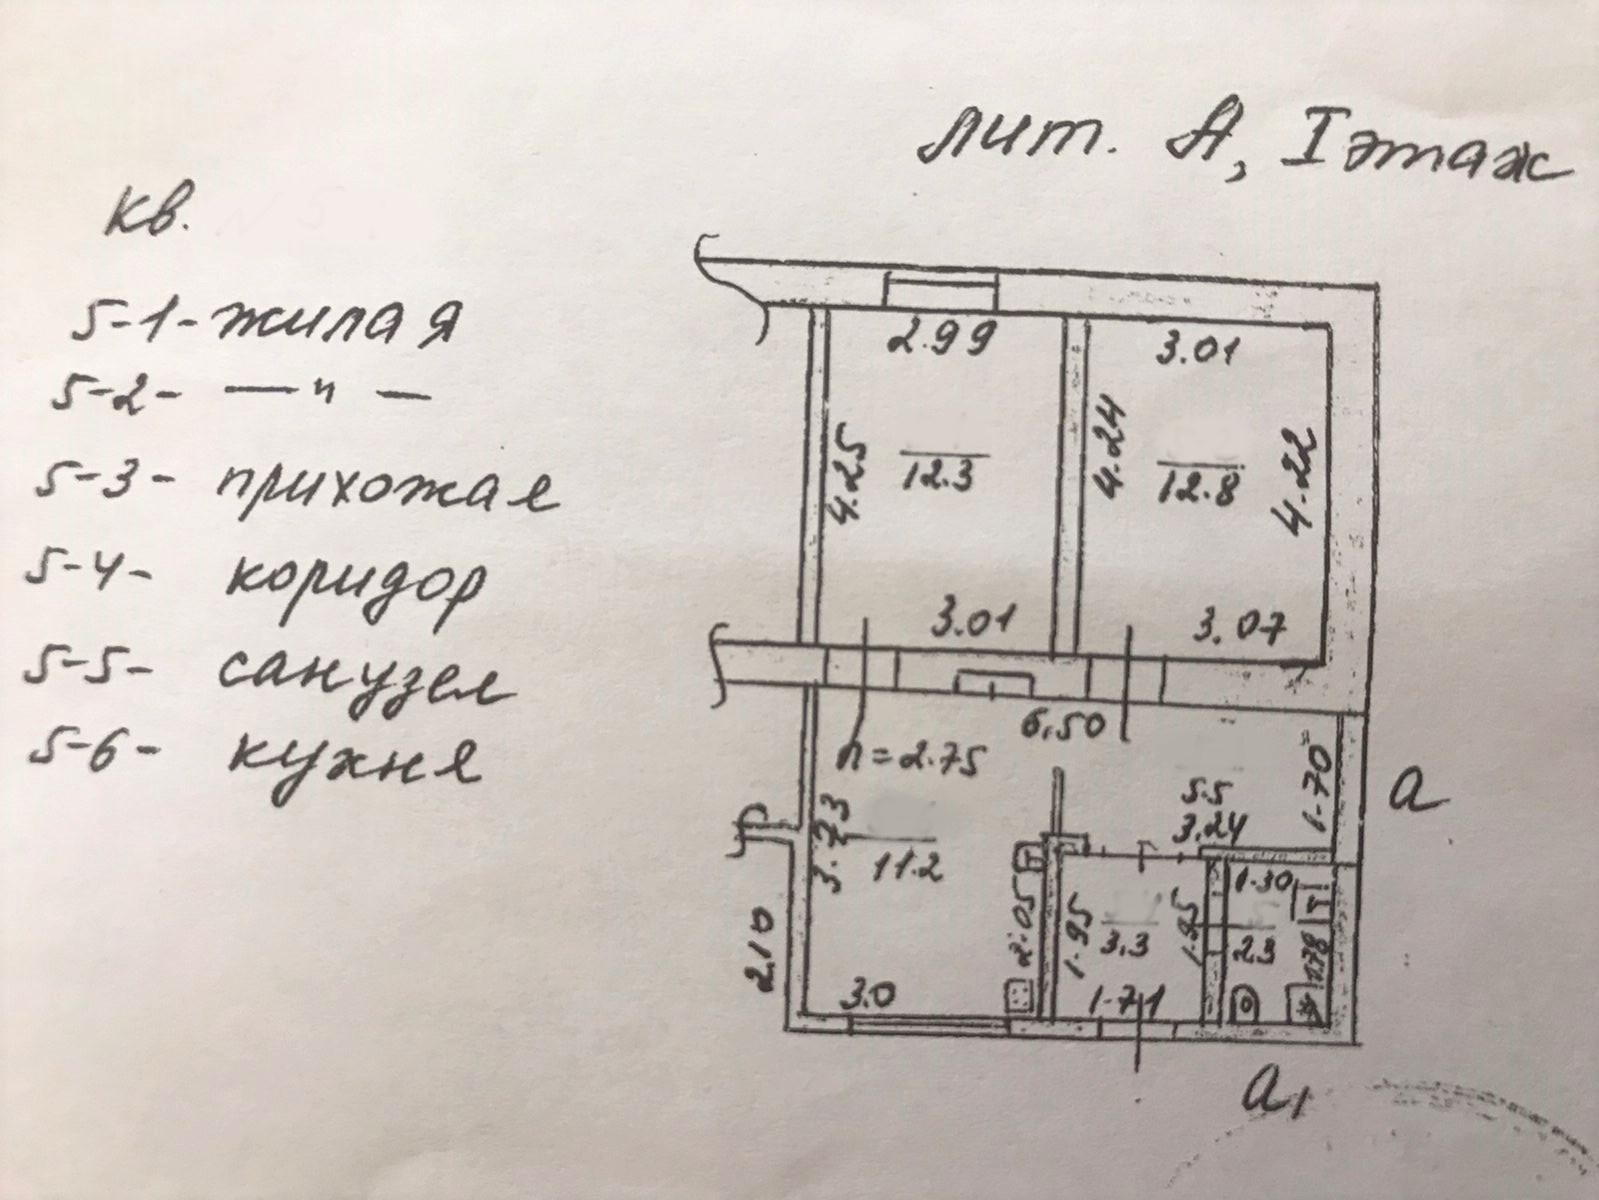 лит. А, I этаж
кв.
5-1- жилая
5-2- —"—
5-3- прихожая
5-4- коридор
5-5- санузел
5-6- кухня
2.99
3.01
4.25
12.3
4.24
12.8
4.22
3.01
3.07
6,50
h=2.75
1.70
а
5.5
3.24
3.73
11.2
1.30
2.05
1.95
3.3
1.95
2.3
1.78
2.10
3.0
1.71
а1